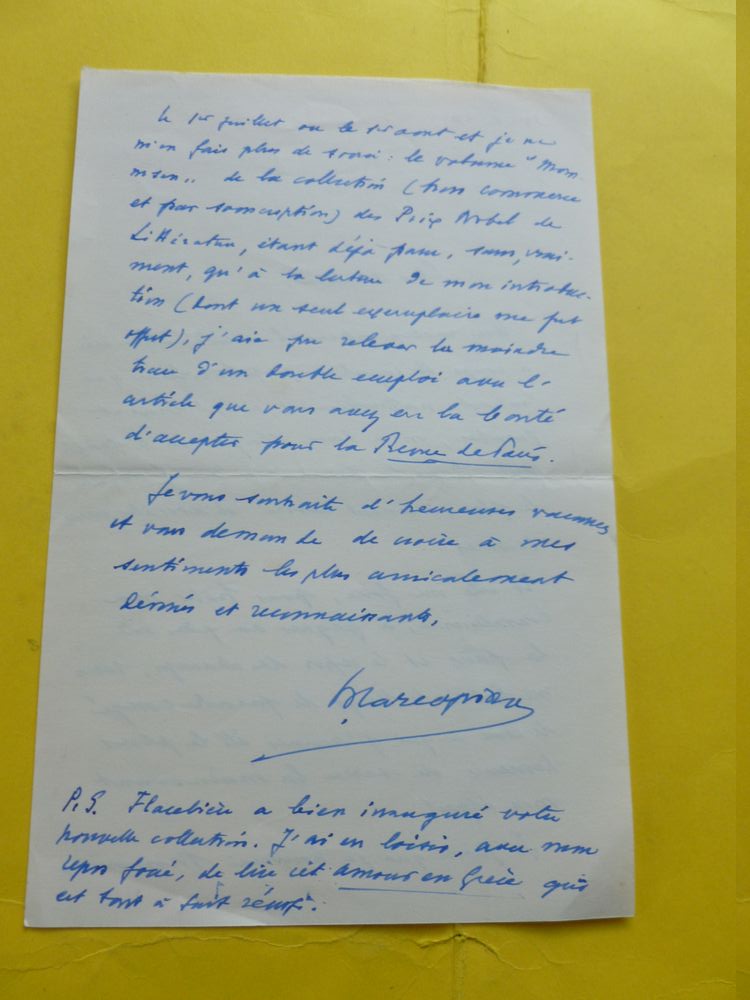 le 1er juillet ou le 1er aout et je ne
m'en fais plus de souci : le volume "Mom-
msen" de la collection (hors commerce
et par souscription) des Prix Nobel de
Littérature, étant déjà paru, sans, vrai-
ment, qu'à la lecture de mon introduc-
tion (dont un seul exemplaire me fut
offert), j'aie pu relever la moindre
trace d'un double emploi avec l'
article que vous avez eu la bonté
d'accepter pour la Revue de Paris.
Je vous souhaite d'heureuses vacances
et vous demande de croire à mes
sentiments les plus amicalement
dévoués et reconnaissants,
Marcopino
P.S. Flacelière a bien inauguré votre
nouvelle collection. J'ai eu loisir, avec mon
repos forcé, de lire cet Amour en Grèce qui
est tout à fait réussi.